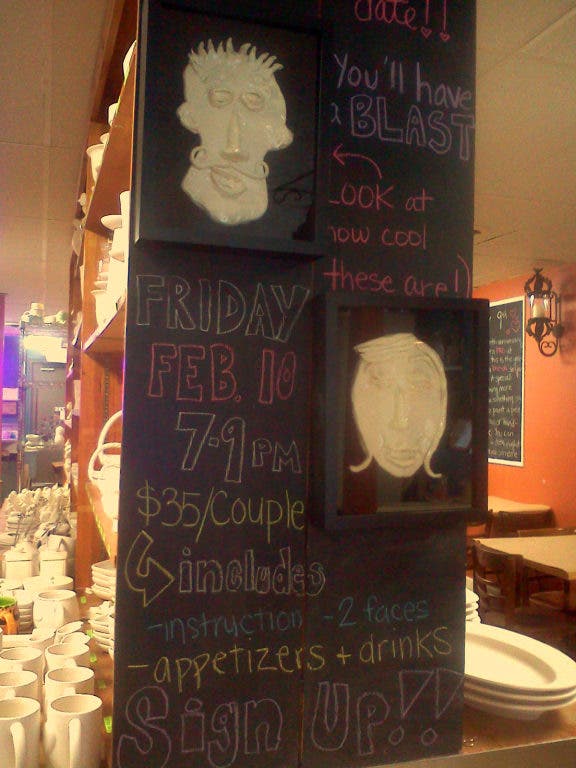 date!!
You'll have
a BLAST
Look at
how cool
these are!)
FRIDAY
FEB. 10
7-9 PM
$35/Couple
includes
-instruction -2 faces
-appetizers + drinks
Sign Up!!